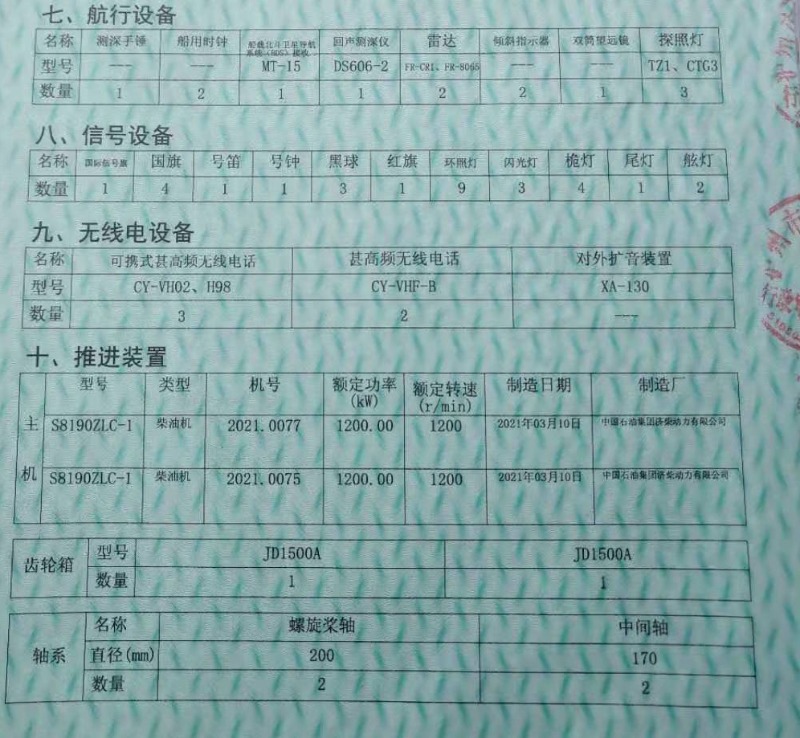 七、航行设备
名称 测深手锤 船用时钟 船载北斗卫星导航系统(BDS)接收 回声测深仪 雷达 倾斜指示器 双筒望远镜 探照灯
型号 --- --- MT-15 DS606-2 FR-CR1、FR-8065 --- --- TZ1、CTG3
数量 1 2 1 1 2 2 1 3
八、信号设备
名称 国际信号旗 国旗 号笛 号钟 黑球 红旗 环照灯 闪光灯 桅灯 尾灯 舷灯
数量 1 4 1 1 3 1 9 3 4 1 2
九、无线电设备
名称 可携式甚高频无线电话 甚高频无线电话 对外扩音装置
型号 CY-VH02、H98 CY-VHF-B XA-130
数量 3 2 ---
十、推进装置
主机 型号 类型 机号 额定功率(kW) 额定转速(r/min) 制造日期 制造厂
S8190ZLC-1 柴油机 2021.0077 1200.00 1200 2021年03月10日 中国石油集团济柴动力有限公司
S8190ZLC-1 柴油机 2021.0075 1200.00 1200 2021年03月10日 中国石油集团济柴动力有限公司
齿轮箱 型号 JD1500A JD1500A
数量 1 1
轴系 名称 螺旋桨轴 中间轴
直径(mm) 200 170
数量 2 2